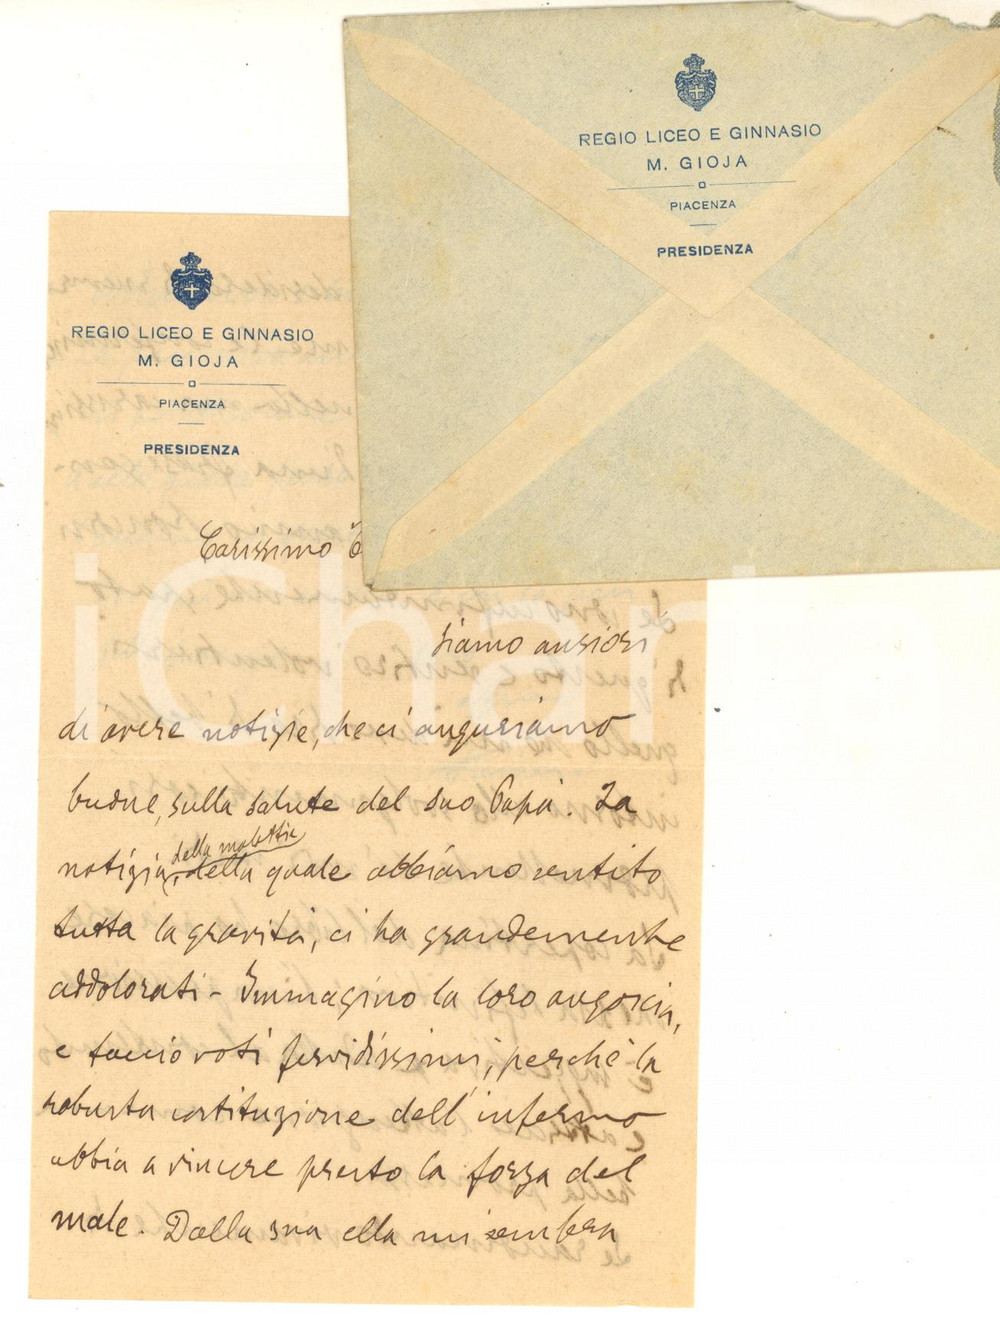 REGIO LICEO E GINNASIO
M. GIOJA
PIACENZA
PRESIDENZA
REGIO LICEO E GINNASIO
M. GIOJA
PIACENZA
PRESIDENZA
Carissimo
siamo ansiosi
di avere notizie, che ci auguriamo
buone, sulla salute del suo Papà. La
della malattia
notizia, della quale abbiamo sentito
tutta la gravità, ci ha grandemente
addolorati - Immagino la loro angoscia,
e faccio voti fervidissimi, perché la
robusta costituzione dell'infermo
abbia a vincere presto la forza del
male. Dalla sua ella mi sembra
iCharta